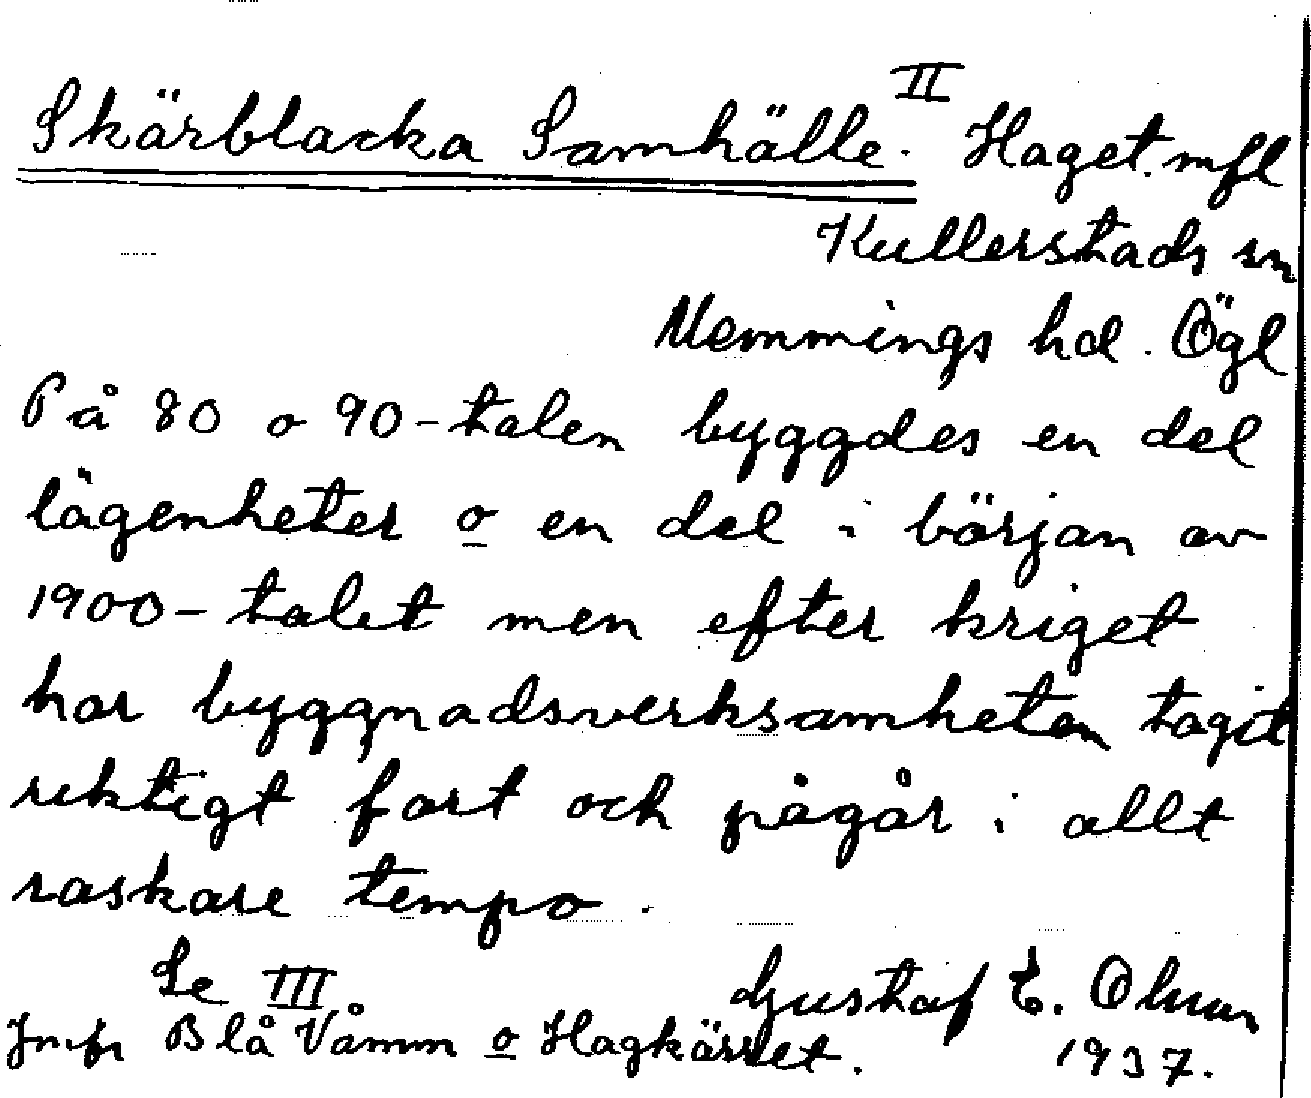 Skärblacka Samhälle. II Haget. mfl
Kullerstads sn
Memmings hd. Ögl
På 80 o 90-talen byggdes en del
lägenheter o en del i början av
1900-talet men efter kriget
har byggnadsverksamheten tagit
riktigt fart och pågår i allt
raskare tempo.
Se III Gustaf E.
Jmfr Blå Våmm o Hagkärret. 1937.